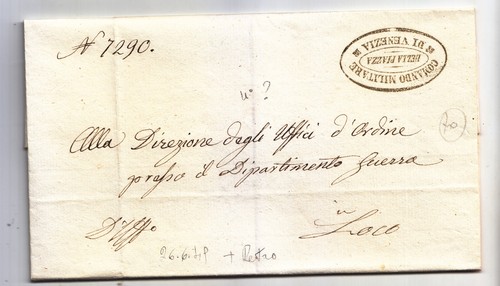 N 7290.
COMANDO MILITARE
DELLA PIAZZA
DI VENEZIA
n° ?
70
Alla Direzione degli Uffici d'Ordine
presso il Dipartimento Guerra
in
D'Uffo
Loco
26.6.49 + Retro